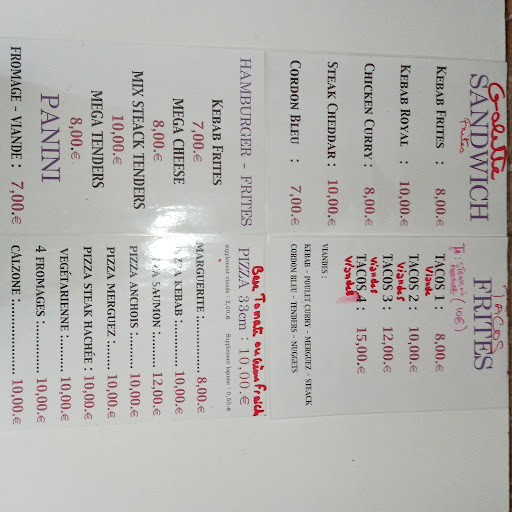 Galette
SANDWICH
Frites
KEBAB FRITES : 8,00.€
KEBAB ROYAL : 10,00.€
CHICKEN CURRY : 8,00.€
STEAK CHEDDAR : 10,00.€
CORDON BLEU : 7,00.€
Tacos
FRITES
(10€)
TACOS 1 : 8,00.€
Viande
TACOS 2 : 10,00.€
Viandes
TACOS 3 : 12,00.€
Viandes
TACOS 4 : 15,00.€
Viandes
VIANDES :
KEBAB - POULET CURRY - MERGUEZ - STEACK
CORDON BLEU - TENDERS - NUGGETS
HAMBURGER - FRITES
KEBAB FRITES
7,00.€
MEGA CHEESE
8,00.€
MIX STEACK TENDERS
10,00.€
MEGA TENDERS
8,00.€
PANINI
FROMAGE - VIANDE : 7,00.€
Base Tomate ou crème Fraiche
PIZZA 33cm : 10,00.€
supplement viande : 2,00.€ Supplement legume : 0,50.€
MARGUERITE : 8,00.€
PIZZA KEBAB : 10,00.€
PIZZA SAUMON : 12,00.€
PIZZA ANCHOIS : 10,00.€
PIZZA MERGUEZ : 10,00.€
PIZZA STEAK HACHÉE : 10,00.€
VEGÉTARIENNE : 10,00.€
4 FROMAGES : 10,00.€
CALZONE : 10,00.€